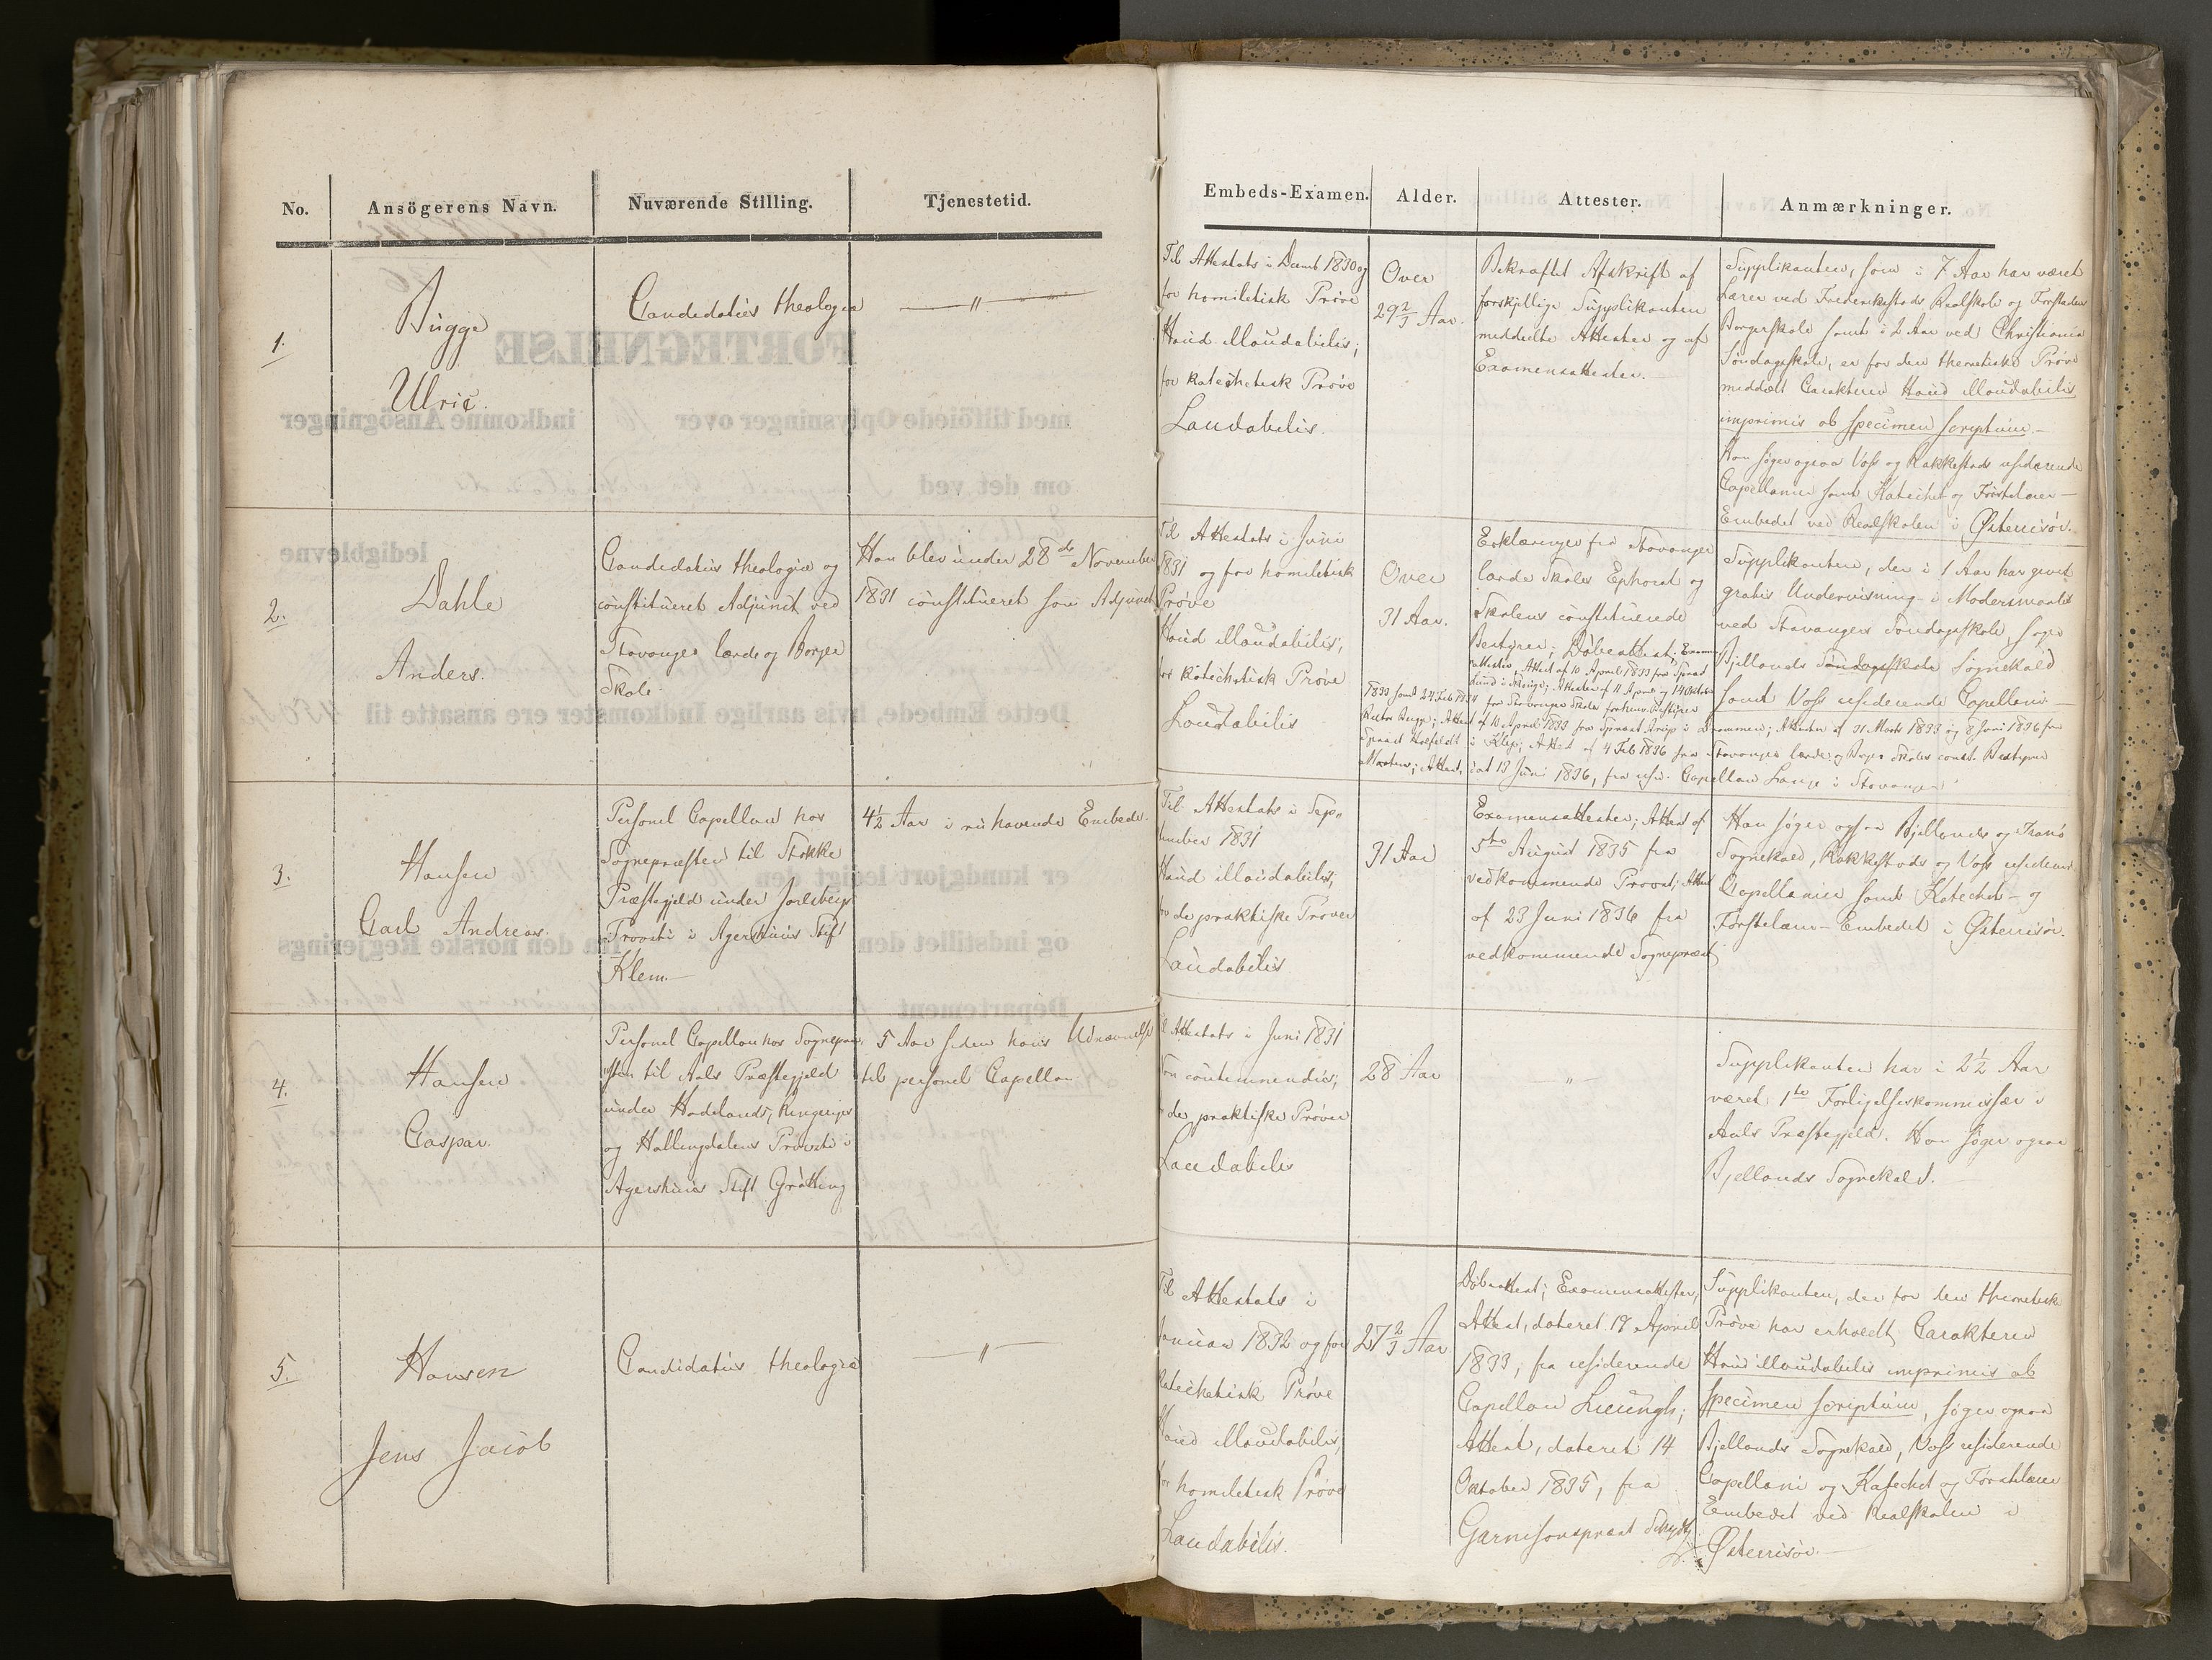 No.
Ansögerens Navn.
Nuværende Stilling.
Tjenestetid.
Embeds-Examen.
Alder.
Attester.
Anmærkninger.
1.
Bugge
Ulric.
Candidatus theologiæ
— " —
Til Attestats i Decmb 1830 og
for homiletisk Prøve
Haud illaudabilis;
for katechetisk Prøve
Laudabilis.
Over
29 2/3 Aar.
Bekræftet Afskrift af
forskjellige Supplikanten
meddelte Attester og af
Examensattester.
Supplikanten, som i 7 Aar har været
Lærer ved Frederikstads Realskole og Forstadens
Borgerskole samt i 2 Aar ved Christiania
Søndagsskole, er for den theoretiske Prøve
meddelt Carakteren Haud illaudabilis
imprimis ob specimen scriptum.—
Han søger ogsaa Voss og Rakkestads residerende
Capellanier samt Katechet og Førstelærer—
Embedet ved Realskolen i Østerrisör.
2.
Dahle
Anders.
Candidatus theologiæ og
constitueret Adjunct ved
Stavanger lærde og Borger
Skole.
Han blev under 28de November
1831 constitueret som Adjunct
Til Attestats i Juni
1831 og for homiletisk
Prøve
Haud illaudabilis;
for katechetisk Prøve
Laudabilis
Over
31 Aar.
Erklæringer fra Stavanger
lærde Skoles Ephorat og
Skolens constituerede
Bestyrer; Döbeattest; Examens
attester, Attest af 10 April 1833 fra
Attester af 11 April og 14 Oktober
1833 samt 24 Feb 1834 fra Stavanger Skoles forhenv. Bestyrer
Rector Bugge; Attest af 10 April 1833 fra Spræst Arup i Drammen; Attester af 31 Marts 1833 og 8 Juni 1836 fra
i Klep; Attest af 4 Feb 1836 fra Stavanger lærde og Borger Skoles const. Bestyrer
Attest, dat 13 Juni 1836, fra resid. Capellan Lange i Stavanger
Supplikanten, der i 1 Aar har givet
gratis Underviisning i Modersmaalet
ved Stavangers Søndagsskole, søger
Bjellands Sognekald
samt Voss residerende Capellani.—
3.
Hansen
Carl Andreas.
Personel Capellan hos
Sognepræsten til Stokke
Præstegjeld under Jarlsbergs
Provsti i Agershuus Stift
Klem.—
4½ Aar i nu havende Embede.
Til Attestats i Sep-
tember 1831
Haud illaudabilis;
for de praktiske Prøver
Laudabilis
31 Aar
Examensattester; Attest af
5te August 1835 fra
vedkommende Provst; Attest
af 23 Juni 1836 fra
vedkommende Sognepræst
Han søger ogsaa Bjellands og Tranö
Sognekald, Rakkestads og Voss resider.
Capellanier samt Katechet- og
Førstelærer-Embedet i Østerrisör.
4.
Hansen
Caspar.
Personel Capellan hos Sognepræ-
sten til Aals Præstegjeld
under Hadelands, Ringeriges
og Hallingdalens Provsti i
Agershuus Stift Grøtting
5 Aar siden hans Udnævnelse
til personel Capellan.
Til Attestats i Juni 1831
Non contemnendus;
for de praktiske Prøver
Laudabilis
28 Aar
— " —
Supplikanten har i 2½ Aar
været 1ste Forligelseskommissær i
Aals Præstegjeld. Han søger ogsaa
Bjellands Sognekald.
5.
Hansen
Jens Jacob
Candidatus theologiæ
— " —
Til Attestats i
Januar 1832 og for
katechetisk Prøve
Haud illaudabilis;
for homiletisk Prøve
Laudabilis.
27 2/3 Aar
Döbeattest; Examensattester;
Attest, dateret 19 April
1833, fra residerende
Capellan Lieungh;
Attest, dateret 14
Oktober 1835, fra
Garnisonspræst
Supplikanten, der for den theoretiske
Prøve har erholdt Carakteren
Haud illaudabilis imprimis ob
specimen scriptum, søger ogsaa
Bjellands Sognekald, Voss residerende
Capellani og Katechet og Førstelærer
Embedet ved Realskolen i
Østerrisör.—